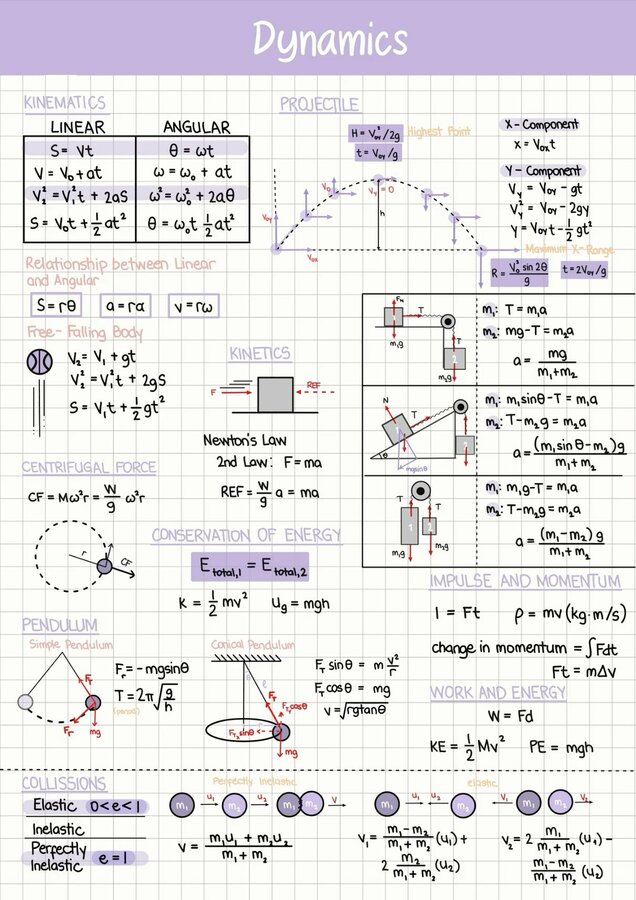 Dynamics
KINEMATICS
LINEAR
ANGULAR
S = Vt
θ = ωt
V = V₀ + at
ω = ω₀ + at
V₂² = V₁²t + 2aS
ω² = ω₀² + 2aθ
S = V₀t + 1/2 at²
θ = ω₀t 1/2 at²
Relationship between Linear
and Angular
S = rθ
a = rα
v = rω
Free- Falling Body
V₂ = V₁ + gt
V₂² = V₁²t + 2gS
S = V₁t + 1/2 gt²
PROJECTILE
H = V₀y²/2g
Highest Point
t = V₀y/g
V₀
Vy = 0
V₀y
h
V₀x
X - Component
x = V₀xt
Y - Component
Vy = V₀y - gt
Vy² = V₀y - 2gy
y = V₀yt - 1/2 gt²
Maximum X-Range
R = V₀² sin 2θ / g
t = 2V₀y/g
KINETICS
F
REF
Newton's Law
2nd Law: F = ma
REF = W/g a = ma
T
m₁g
1
T
2
m₂g
m₁: T = m₁a
m₂: mg - T = m₂a
a = mg / m₁ + m₂
N
T
1
T
2
θ
mgsinθ
m₁: m₁sinθ - T = m₁a
m₂: T - m₂g = m₂a
a = (m₁ sinθ - m₂)g / m₁ + m₂
T
T
1
2
m₁g
m₂g
m₁: m₁g - T = m₁a
m₂: T - m₂g = m₂a
a = (m₁ - m₂) g / m₁ + m₂
CENTRIFUGAL FORCE
CF = Mω²r = W/g ω²r
r
CF
CONSERVATION OF ENERGY
E total,1 = E total,2
K = 1/2 mv²
Ug = mgh
IMPULSE AND MOMENTUM
I = Ft
ρ = mv (kg·m/s)
change in momentum = ∫Fdt
Ft = mΔv
PENDULUM
Simple Pendulum
Fr
Fr
mg
Fr = - mgsinθ
T = 2π√(g/h)
(period)
Conical Pendulum
θ
Fr
Fr cosθ
mg
Fr sinθ = m v²/r
Fr cosθ = mg
v = √rgtanθ
WORK AND ENERGY
W = Fd
KE = 1/2 Mv²
PE = mgh
COLLISSIONS
Elastic
0 < e < 1
Inelastic
Perfectly
Inelastic
e = 1
Perfectly Inelastic
m₁
u₁
m₂
u₂
m₁
m₂
V
V = m₁u₁ + m₂u₂ / m₁ + m₂
elastic
m₁
u₁
u₂
m₂
V₁
m₁
m₂
V₂
V₁ = m₁ - m₂ / m₁ + m₂ (u₁) +
2 m₂ / m₁ + m₂ (u₂)
V₂ = 2 m₁ / m₁ + m₂ (u₁) -
m₁ - m₂ / m₁ + m₂ (u₂)